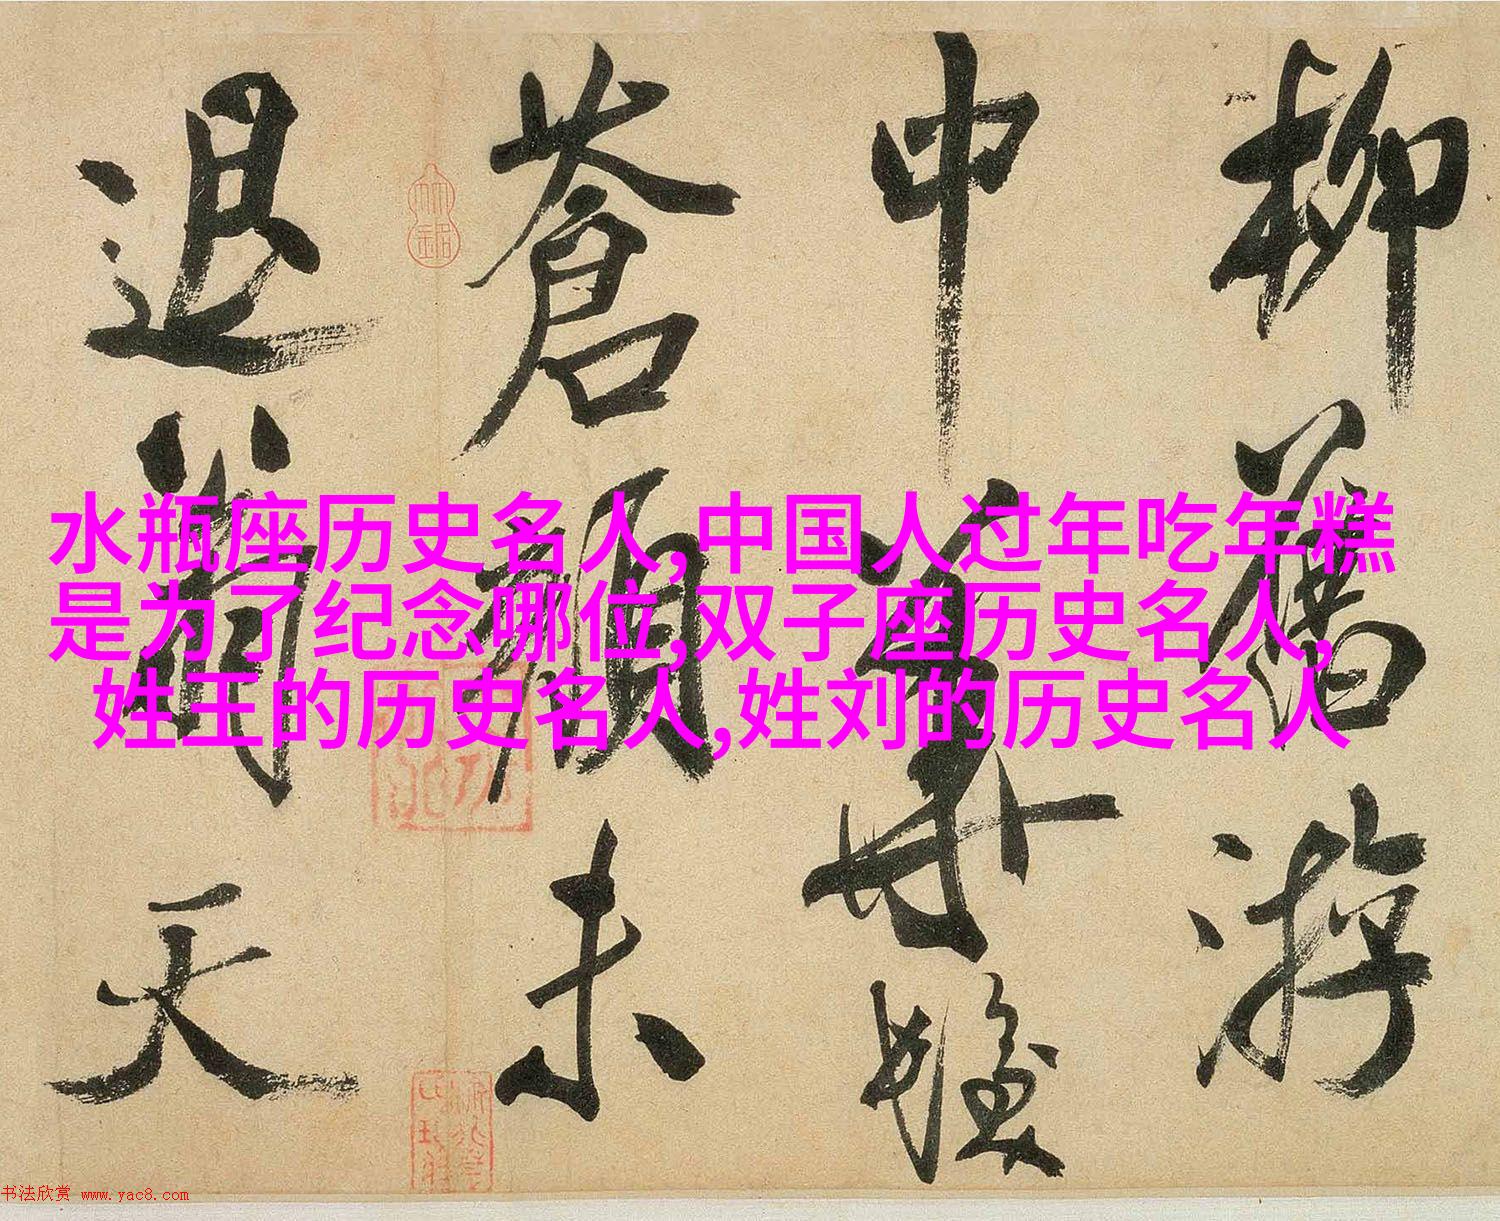 柳舊遊
中華髮
蒼顏未
退翁天
水瓶座历史名人,中国人过年吃年糕
是为了纪念哪位,双子座历史名人,
姓王的历史名人,姓刘的历史名人
书法欣赏 www.yac8.com